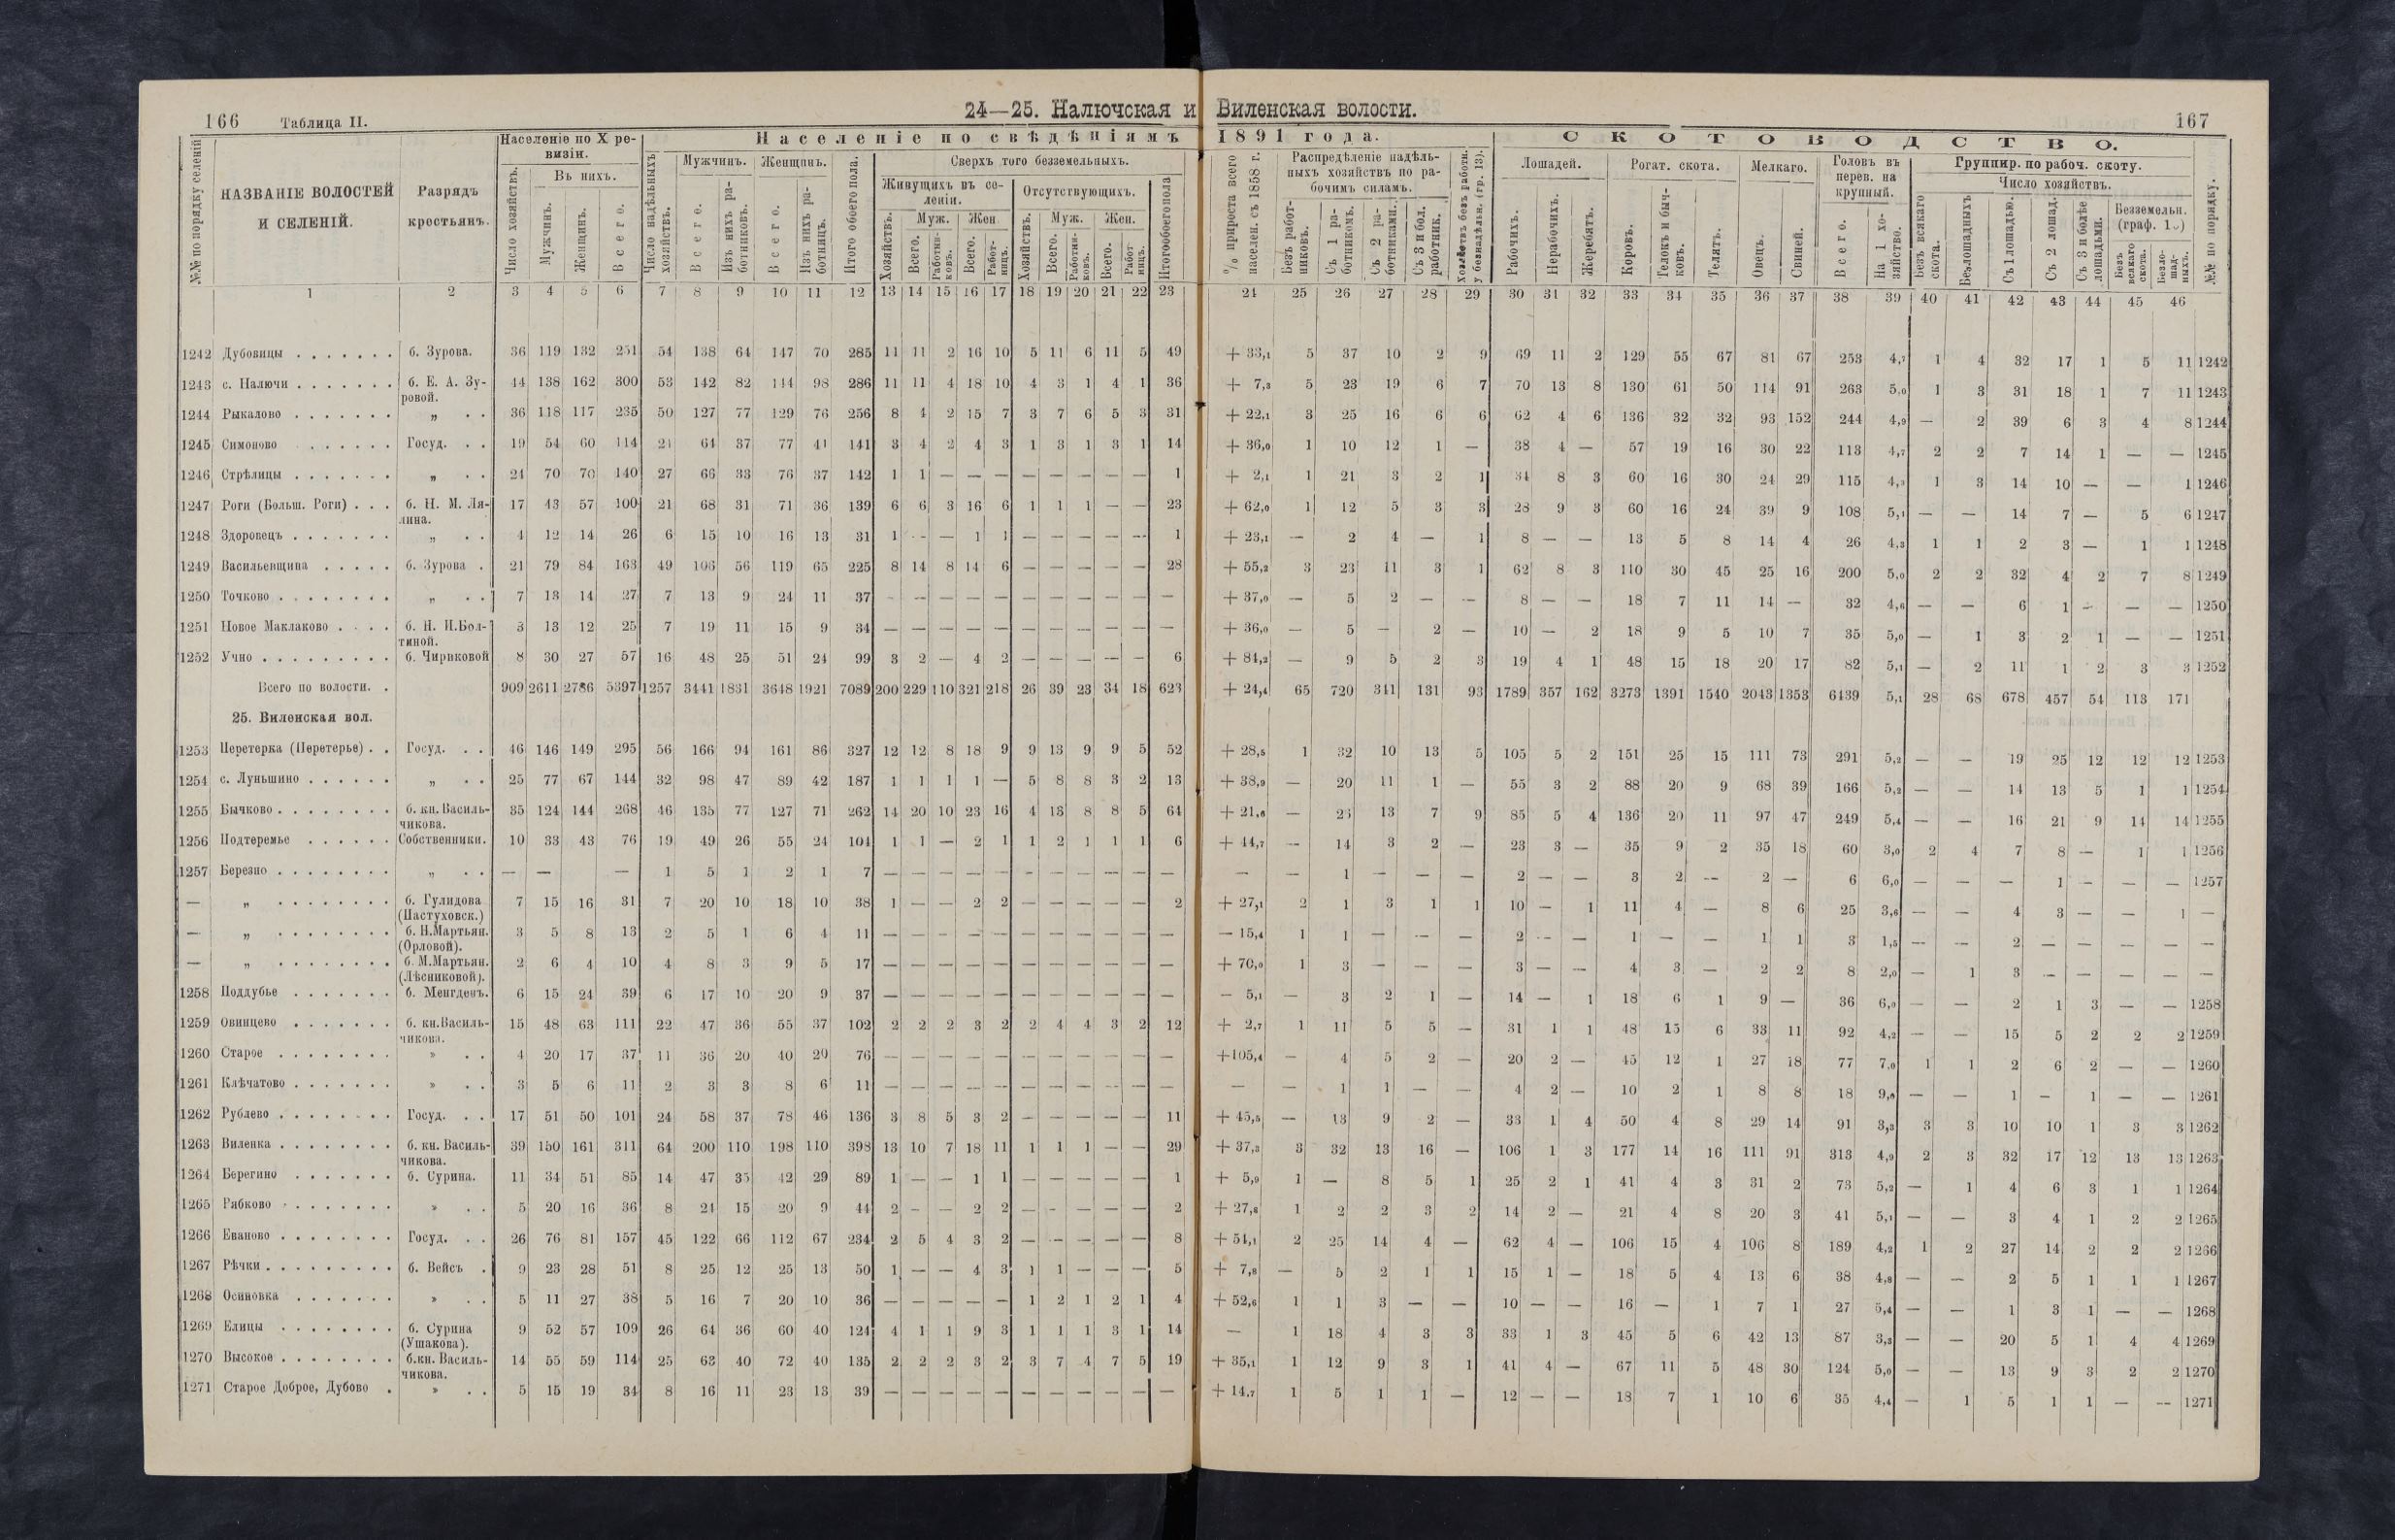 166 Таблица II.
24—25. Налючская и Виленская волости.
167
№№ по порядку селеній
НАЗВАНІЕ ВОЛОСТЕЙ И СЕЛЕНІЙ.
Разрядъ крестьянъ.
Населеніе по X ревизіи.
Въ нихъ.
Населеніе по свѣдѣніямъ 1891 года.
Мужчинъ. Женщинъ.
Сверхъ того безземельныхъ.
Живущихъ въ селеніи.
Отсутствующихъ.
Распредѣленіе надѣльныхъ хозяйствъ по рабочимъ силамъ.
СКОТОВОДСТВО.
Лошадей. Рогат. скота. Мелкаго. Головъ въ перев. на крупный.
Группир. по рабоч. скоту.
Число хозяйствъ.
1 2 3 4 5 6 7 8 9 10 11 12 13 14 15 16 17 18 19 20 21 22 23 24 25 26 27 28 29 30 31 32 33 34 35 36 37 38 39 40 41 42 43 44 45 46
1242 Дубовицы б. Зурова. 36 119 132 251 54 138 64 147 70 285 11 11 2 16 10 5 11 6 11 5 49 + 33,1 5 37 10 2 9 69 11 2 129 55 67 81 67 253 4,7 1 4 32 17 1 5 11 1242
1243 с. Налючи б. Е. А. Зуровой. 44 138 162 300 53 142 82 144 98 286 11 11 4 18 10 4 3 1 4 1 36 + 7,3 5 23 19 6 7 70 13 8 130 61 50 114 91 263 5,0 1 3 31 18 1 7 11 1243
1244 Рыкалово „ 36 118 117 235 50 127 77 129 76 256 8 4 2 15 7 3 7 6 5 3 31 + 22,1 3 25 16 6 6 62 4 6 136 32 32 93 152 244 4,9 — 2 39 6 3 4 8 1244
1245 Симоново Госуд. 19 54 60 114 21 64 37 77 41 141 3 4 2 4 3 1 3 1 3 1 14 + 36,0 1 10 12 1 — 38 4 — 57 19 16 30 22 113 4,7 2 2 7 14 1 — — 1245
1246 Стрѣлицы „ 24 70 70 140 27 66 33 76 37 142 1 1 — — — — — — — — 1 + 2,1 1 21 3 2 1 34 8 3 60 16 30 24 29 115 4,3 1 3 14 10 — — 1 1246
1247 Роги (Больш. Роги) б. Н. М. Лялина. 17 43 57 100 21 68 31 71 36 139 6 6 3 16 6 1 1 1 — — 23 + 62,0 1 12 5 3 3 28 9 3 60 16 24 39 9 108 5,1 — — 14 7 — 5 6 1247
1248 Здоровецъ „ 4 12 14 26 6 15 10 16 13 31 1 — — 1 1 — — — — — 1 + 23,1 — 2 4 — 1 8 — — 13 5 8 14 4 26 4,3 1 1 2 3 — 1 1 1248
1249 Васильевщина б. Зурова 21 79 84 163 49 106 56 119 65 225 8 14 8 14 6 — — — — — 28 + 55,2 3 23 11 3 1 62 8 3 110 30 45 25 16 200 5,0 2 2 32 4 2 7 8 1249
1250 Точково „ 7 13 14 27 7 13 9 24 11 37 — — — — — — — — — — — + 37,0 — 5 2 — — 8 — — 18 7 11 14 — 32 4,6 — — 6 1 — — — 1250
1251 Новое Маклаково б. Н. И.Болтиной. 3 13 12 25 7 19 11 15 9 34 — — — — — — — — — — — + 36,0 — 5 — 2 — 10 — 2 18 9 5 10 7 35 5,0 — 1 3 2 1 — — 1251
1252 Учно б. Чириковой 8 30 27 57 16 48 25 51 24 99 3 2 — 4 2 — — — — — 6 + 84,2 — 9 5 2 3 19 4 1 48 15 18 20 17 82 5,1 — 2 11 1 2 3 3 1252
Всего по волости. 909 2611 2786 5397 1257 3441 1831 3648 1921 7089 200 229 110 321 218 26 39 23 34 18 623 + 24,4 65 720 341 131 93 1789 357 162 3273 1391 1540 2043 1353 6439 5,1 28 68 678 457 54 113 171
25. Виленская вол.
1253 Перетерка (Перетерье) Госуд. 46 146 149 295 56 166 94 161 86 327 12 12 8 18 9 9 13 9 9 5 52 + 28,5 1 32 10 13 5 105 5 2 151 25 15 111 73 291 5,2 — — 19 25 12 12 12 1253
1254 с. Луньшино „ 25 77 67 144 32 98 47 89 42 187 1 1 1 1 — 5 8 8 3 2 13 + 38,9 — 20 11 1 — 55 3 2 88 20 9 68 39 166 5,2 — — 14 13 5 1 1 1254
1255 Бычково б. кн. Васильчикова. 35 124 144 268 46 135 77 127 71 262 14 20 10 23 16 4 13 8 8 5 64 + 21,6 — 23 13 7 9 85 5 4 136 20 11 97 47 249 5,4 — — 16 21 9 14 14 1255
1256 Подтеремье Собственники. 10 33 43 76 19 49 26 55 24 104 1 1 — 2 1 1 2 1 1 1 6 + 44,7 — 14 3 2 — 23 3 — 35 9 2 35 18 60 3,0 2 4 7 8 — 1 1 1256
1257 Березно „ — — — 1 5 1 2 1 7 — — — — — — — — — — — — — 1 — — — 2 — — 3 2 — 2 — 6 6,0 — — — 1 — — — 1257
— „ б. Гулидова (Пастуховск.) 7 15 16 31 7 20 10 18 10 38 1 — — 2 2 — — — — — 2 + 27,1 2 1 3 1 1 10 — 1 11 4 — 8 6 25 3,6 — — 4 3 — — 1 —
— „ б. Н.Мартьян. (Орловой). 3 5 8 13 2 5 1 6 4 11 — — — — — — — — — — — — 15,4 1 1 — — — 2 — — 1 — — 1 1 3 1,5 — — 2 — — — — —
— „ б. М.Мартьян. (Лѣсниковой). 2 6 4 10 4 8 3 9 5 17 — — — — — — — — — — — + 70,0 1 3 — — — 3 — — 4 3 — 2 2 8 2,0 — 1 3 — — — — —
1258 Поддубье б. Менгденъ. 6 15 24 39 6 17 10 20 9 37 — — — — — — — — — — — — 5,1 — 3 2 1 — 14 — 1 18 6 1 9 — 36 6,0 — — 2 1 3 — — 1258
1259 Овинцево б. кн.Васильчикова. 15 48 63 111 22 47 36 55 37 102 2 2 2 3 2 2 4 4 3 2 12 + 2,7 1 11 5 5 — 31 1 1 48 15 6 33 11 92 4,2 — — 15 5 2 2 2 1259
1260 Старое » 4 20 17 37 11 36 20 40 20 76 — — — — — — — — — — — +105,4 — 4 5 2 — 20 2 — 45 12 1 27 18 77 7,0 1 1 2 6 2 — — 1260
1261 Клѣчатово » 3 5 6 11 2 3 3 8 6 11 — — — — — — — — — — — — — 1 1 — — 4 2 — 10 2 1 8 8 18 9,0 — — 1 — 1 — — 1261
1262 Рублево Госуд. 17 51 50 101 24 58 37 78 46 136 3 8 5 3 2 — — — — — 11 + 45,5 — 13 9 2 — 33 1 4 50 4 8 29 14 91 3,3 3 3 10 10 1 3 3 1262
1263 Виленка б. кн. Васильчикова. 39 150 161 311 64 200 110 198 110 398 13 10 7 18 11 1 1 1 — — 29 + 37,3 3 32 13 16 — 106 1 3 177 14 16 111 91 313 4,9 2 3 32 17 12 13 13 1263
1264 Берегино б. Сурина. 11 34 51 85 14 47 35 42 29 89 1 — — 1 1 — — — — — 1 + 5,9 1 — 8 5 1 25 2 1 41 4 3 31 2 73 5,2 — 1 4 6 3 1 1 1264
1265 Рябково » 5 20 16 36 8 24 15 20 9 44 2 — — 2 2 — — — — — 2 + 27,8 1 2 2 3 2 14 2 — 21 4 8 20 3 41 5,1 — — 3 4 1 2 2 1265
1266 Еваново Госуд. 26 76 81 157 45 122 66 112 67 234 2 5 4 3 2 — — — — — 8 + 54,1 2 25 14 4 — 62 4 — 106 15 4 106 8 189 4,2 1 2 27 14 2 2 2 1266
1267 Рѣчки б. Вейсъ 9 23 28 51 8 25 12 25 13 50 1 — — 4 3 1 1 — — — 5 + 7,8 — 5 2 1 1 15 1 — 18 5 4 13 6 38 4,8 — — 2 5 1 1 1 1267
1268 Осиновка » 5 11 27 38 5 16 7 20 10 36 — — — — — 1 2 1 2 1 4 + 52,6 1 1 3 — — 10 — — 16 — 1 7 1 27 5,4 — — 1 3 1 — — 1268
1269 Елицы б. Сурина (Ушакова). 9 52 57 109 26 64 36 60 40 124 4 1 1 9 3 1 1 1 3 1 14 — 1 18 4 3 3 33 1 3 45 5 6 42 13 87 3,3 — — 20 5 1 4 4 1269
1270 Высокое б.кн. Васильчикова. 14 55 59 114 25 63 40 72 40 135 2 2 2 3 2 3 7 4 7 5 19 + 35,1 1 12 9 3 1 41 4 — 67 11 5 48 30 124 5,0 — — 13 9 3 2 2 1270
1271 Старое Доброе, Дубово » 5 15 19 34 8 16 11 23 13 39 — — — — — — — — — — — + 14,7 1 5 1 1 — 12 — — 18 7 1 10 6 35 4,4 — 1 5 1 1 — — 1271